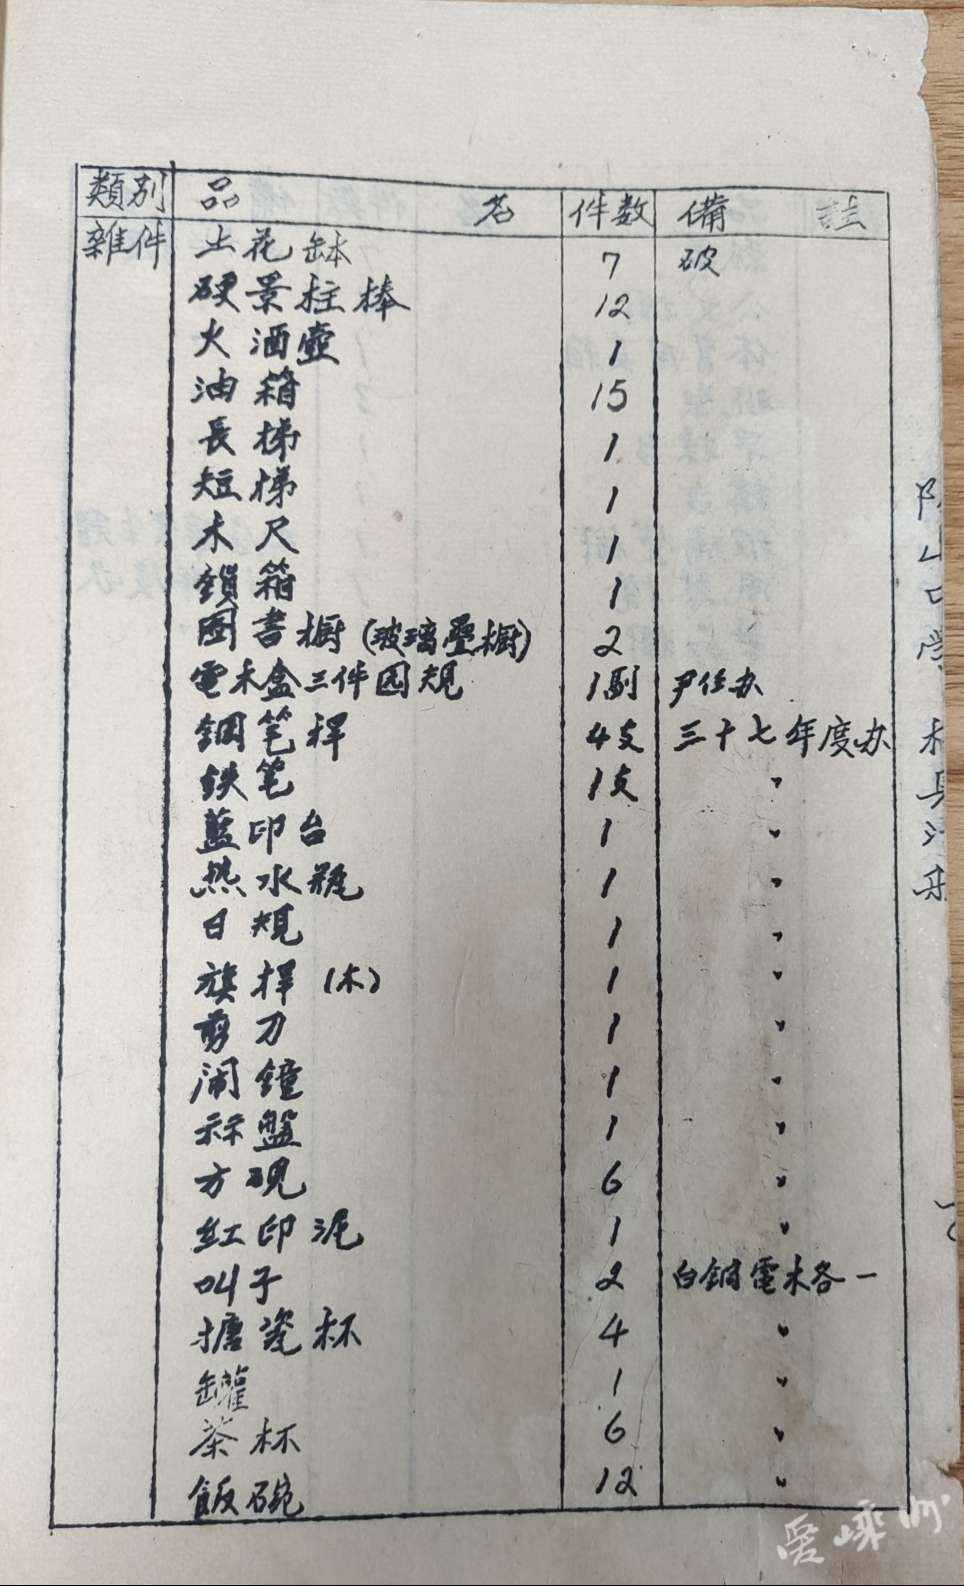 類别 品 名 件数 備 註
雜件 土花缽 7 破
硬景柱棒 12
火酒壺 1
油箱 15
長梯 1
短梯 1
木尺 1
鎖箱 1
圖書橱(玻璃疊橱) 2
電木盒三件园規 1副 尹任办
鋼笔桿 4支 三十七年度办
鉄笔 1支 〃
藍印台 1 〃
热水瓶 1 〃
日規 1 〃
旗桿(木) 1 〃
剪刀 1 〃
闹鐘 1 〃
祘盤 1 〃
方硯 6 〃
红印泥 1 〃
叫子 2 白銅電木各一
搪瓷杯 4 〃
罐 1 〃
茶杯 6 〃
飯碗 12 〃
爱嵊州